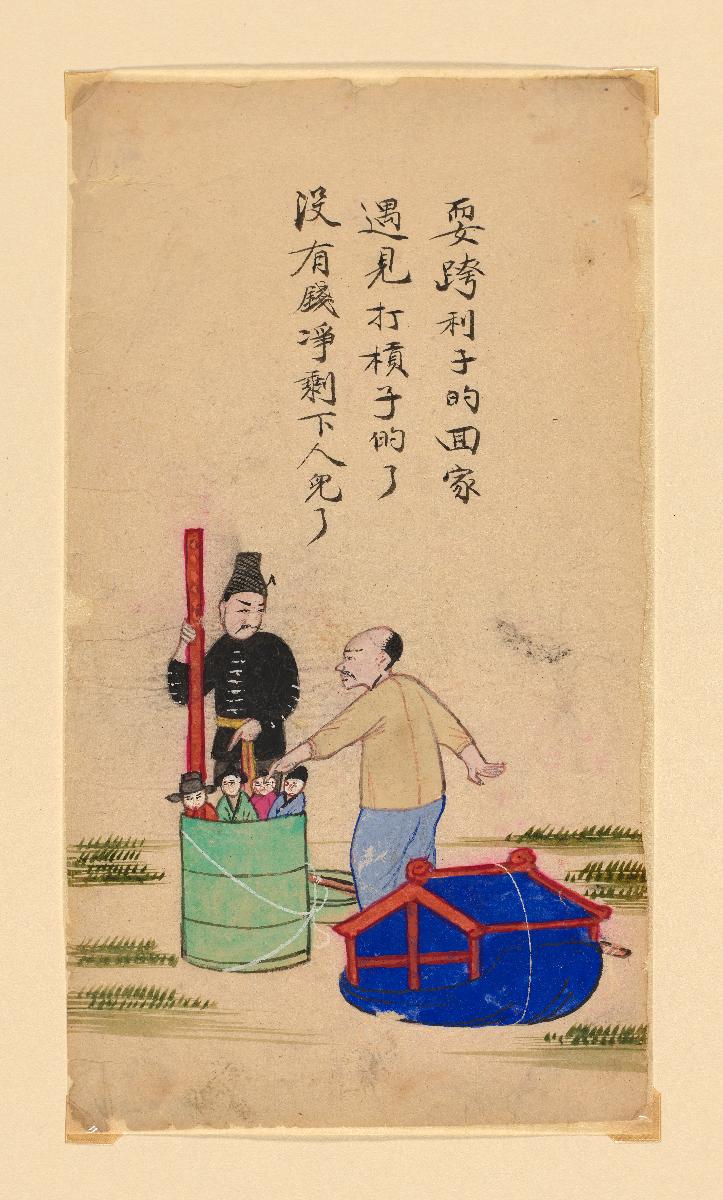 耍跨利子的回家
遇見打槓子的了
没有錢凈剩下人兒了